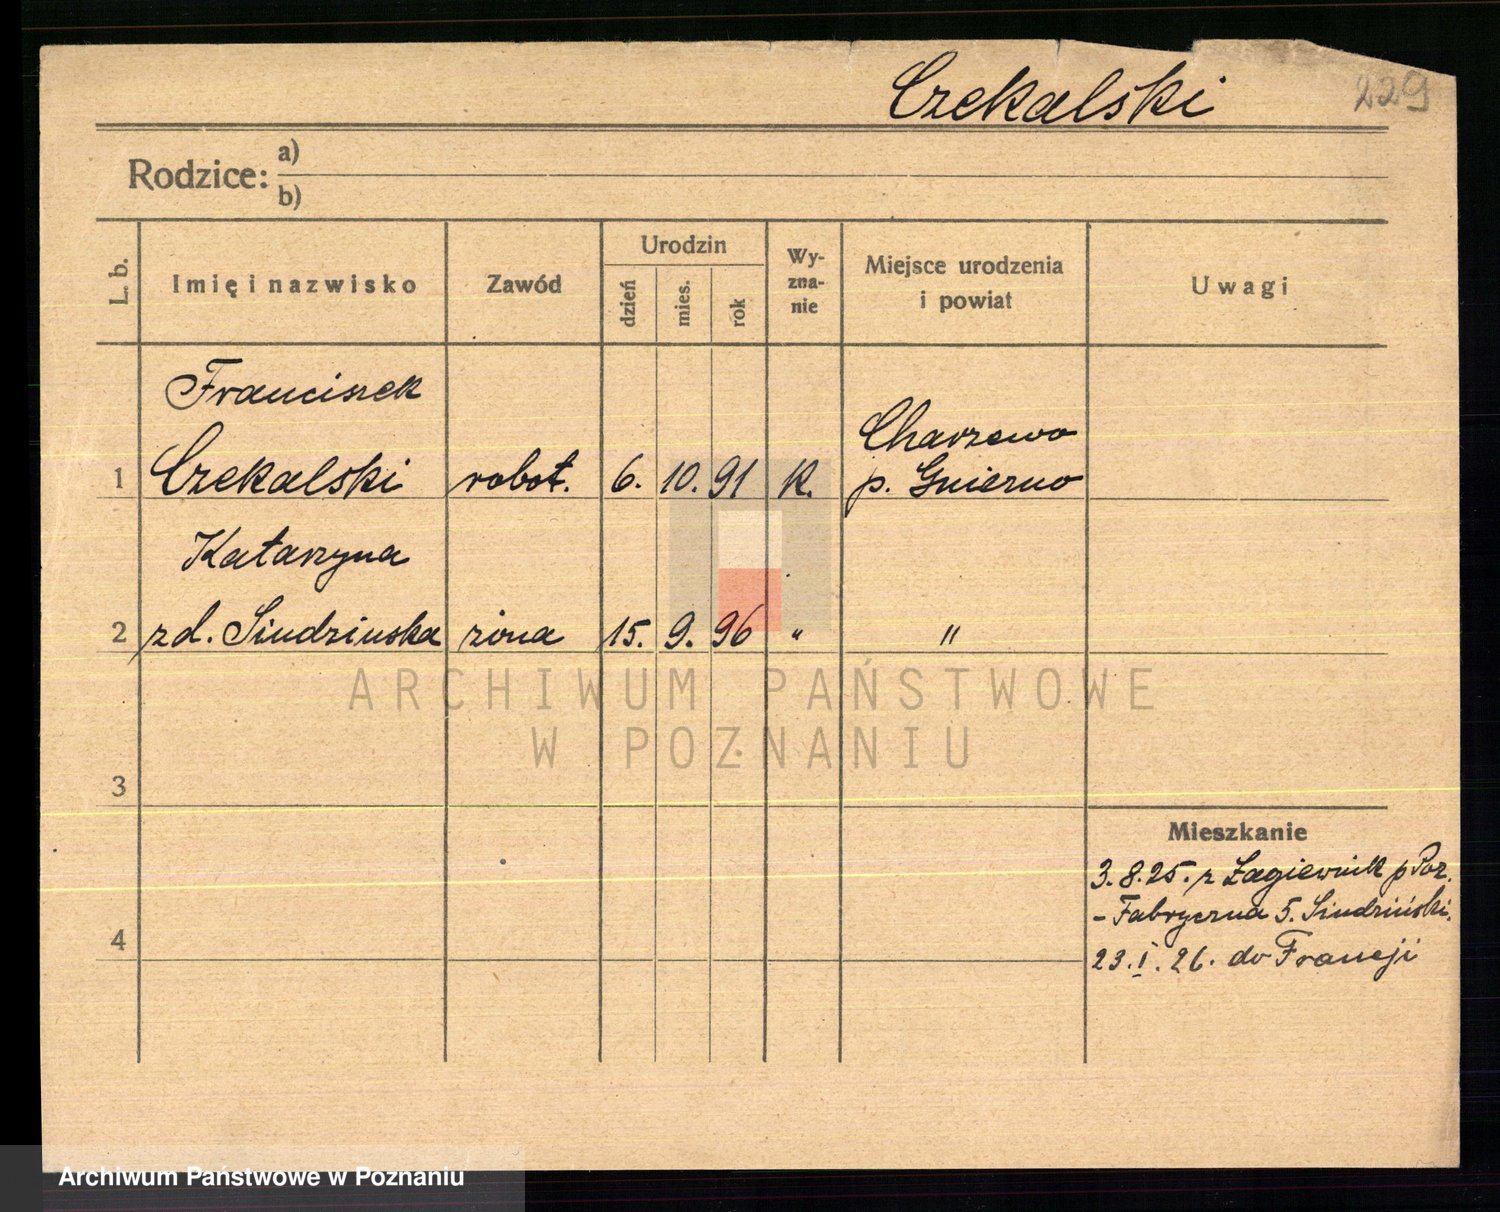 Czekalski 229
Rodzice: a)
b)
L. b. Imię i nazwisko Zawód Urodzin dzień mies. rok Wy-zna-nie Miejsce urodzenia i powiat Uwagi
Franciszek
Charzewo
1 Czekalski robot. 6. 10. 91 K. p. Gniezno
Katarzyna
2 zd. Siudzinska żona 15. 9. 96 " "
ARCHIWUM PAŃSTWOWE
W POZNANIU
3
Mieszkanie
3.8.25. z Łagiewnik p Poz.
- Fabryczna 5. Siudziński.
4
23.I.26. do Francji
Archiwum Państwowe w Poznaniu